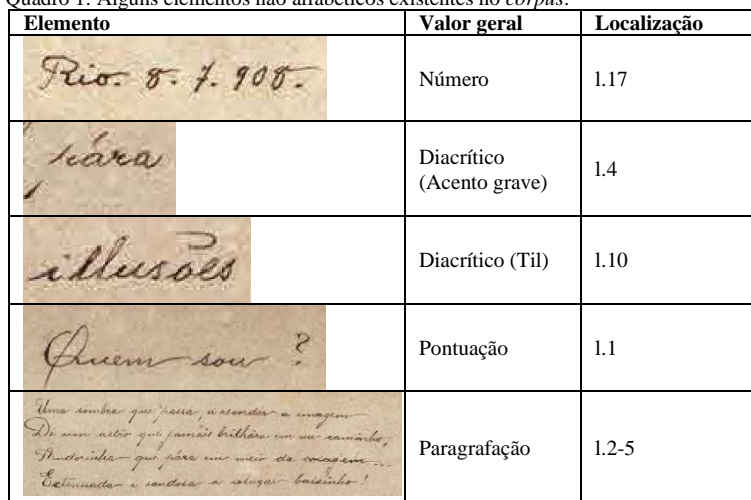 Quadro 1. Alguns elementos não alfabéticos existentes no corpus.
Elemento Valor geral Localização
Rio. 8. 7. 908. Número l.17
pára Diacrítico (Acento grave) l.4
illusões Diacrítico (Til) l.10
Quem sou ? Pontuação l.1
Uma sombra que passa, a recordar a imagem
De um astro que jamais brilhára em seu caminho,
Andorinha que pára em meio da viagem...
Extenuada e a soluçar baixinho!
Paragrafação l.2-5